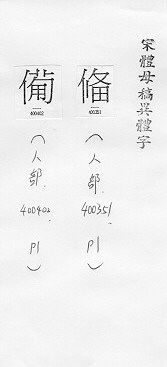 宋體母稿異體字
俻
400351
（人部400351 P1）
備
400402
（人部400402 P1）